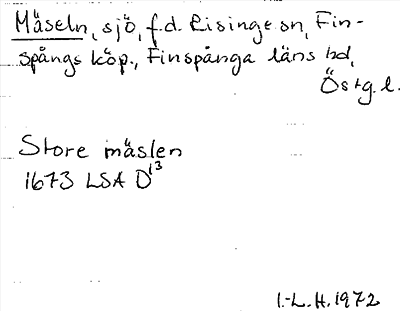 Mäseln, sjö, f.d. Risinge sn, Fin-
spångs köp., Finspånga läns hd,
Östg. l.
Store mäslen
1673 LSA D13
I.-L. H. 1972